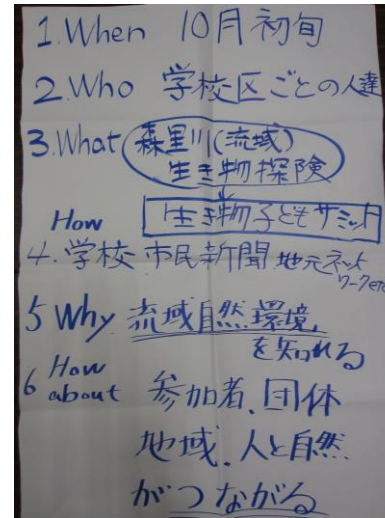 1.When 10月初旬
2.Who 学校区ごとの人達
3.What 森里川(流域)
生き物探険
生き物子どもサミット
How
4.学校 市民新聞 地元ネット
ワークetc
5 Why 流域自然環境
を知れる
6 How
about 参加者、団体
地域、人と自然
がつながる